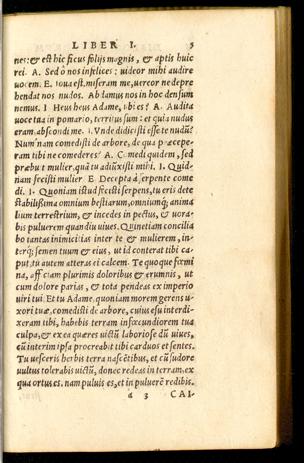 LIBER I. 5
nes: & est hic ficus folijs magnis, & aptis huic
rei. A. Sed ô nos infelices: uideor mihi audire
uocem. E. Ioua est. miseram me, uereor ne depre
hendat nos nudos. Abdamus nos in hoc densum
nemus. I Heus heus Adame, ubi es? A. Audita
uoce tua in pomario, territus sum: et quia nudus
eram, abscondi me. I. Vnde didicisti esse te nudũ?
Num'nam comedisti de arbore, de qua præcepe-
ram tibi ne comederes? A. Comedi quidem, sed
præbuit mulier, quã tu adiũxisti mihi. I. Quid-
nam fecisti mulier? E. Decepta à serpente come
di. I. Quoniam istud fecisti serpens, tu eris dete
stabilissima omnium bestiarum, omniumq; anima
lium terrestrium, & incedes in pectus, & uora-
bis puluerem quandiu uiues. Quinetiam concilia
bo tantas inimicitias inter te & mulierem, in-
terq; semen tuum & eius, ut id conterat tibi ca-
put, tu autem atteras ei calcem. Te quoque fœmi
na, afficiam plurimis doloribus & ærumnis, ut
cum dolore parias, & tota pendeas ex imperio
uiri tui. Et tu Adame, quoniam morem gerens u-
xori tuæ, comedisti de arbore, cuius esu interdi-
xeram tibi, habebis terram infœcundiorem tua
culpa, & ex ea quæres uictũ laboriose dũ uiues,
cũ interim ipsa procreabit tibi carduos et sentes.
Tu uesceris herbis terra nascẽtibus, et cũ sudore
uultus tolerabis uictũ, donec redeas in terram, ex
qua ortus es. nam puluis es, et in puluerẽ redibis.
a 3 CAI-